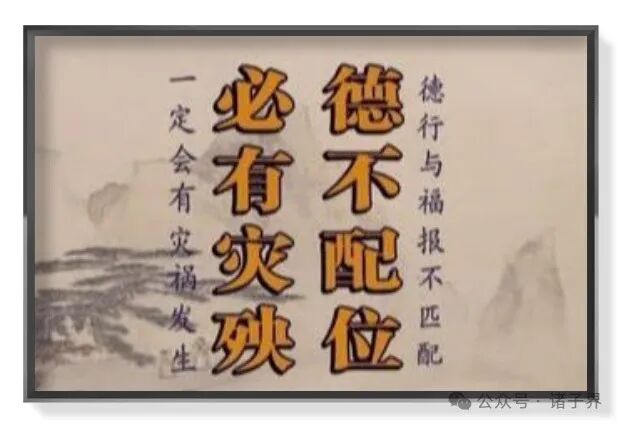 德行与福报不匹配
德不配位
必有灾殃
一定会有灾祸发生
公众号 · 诸子界